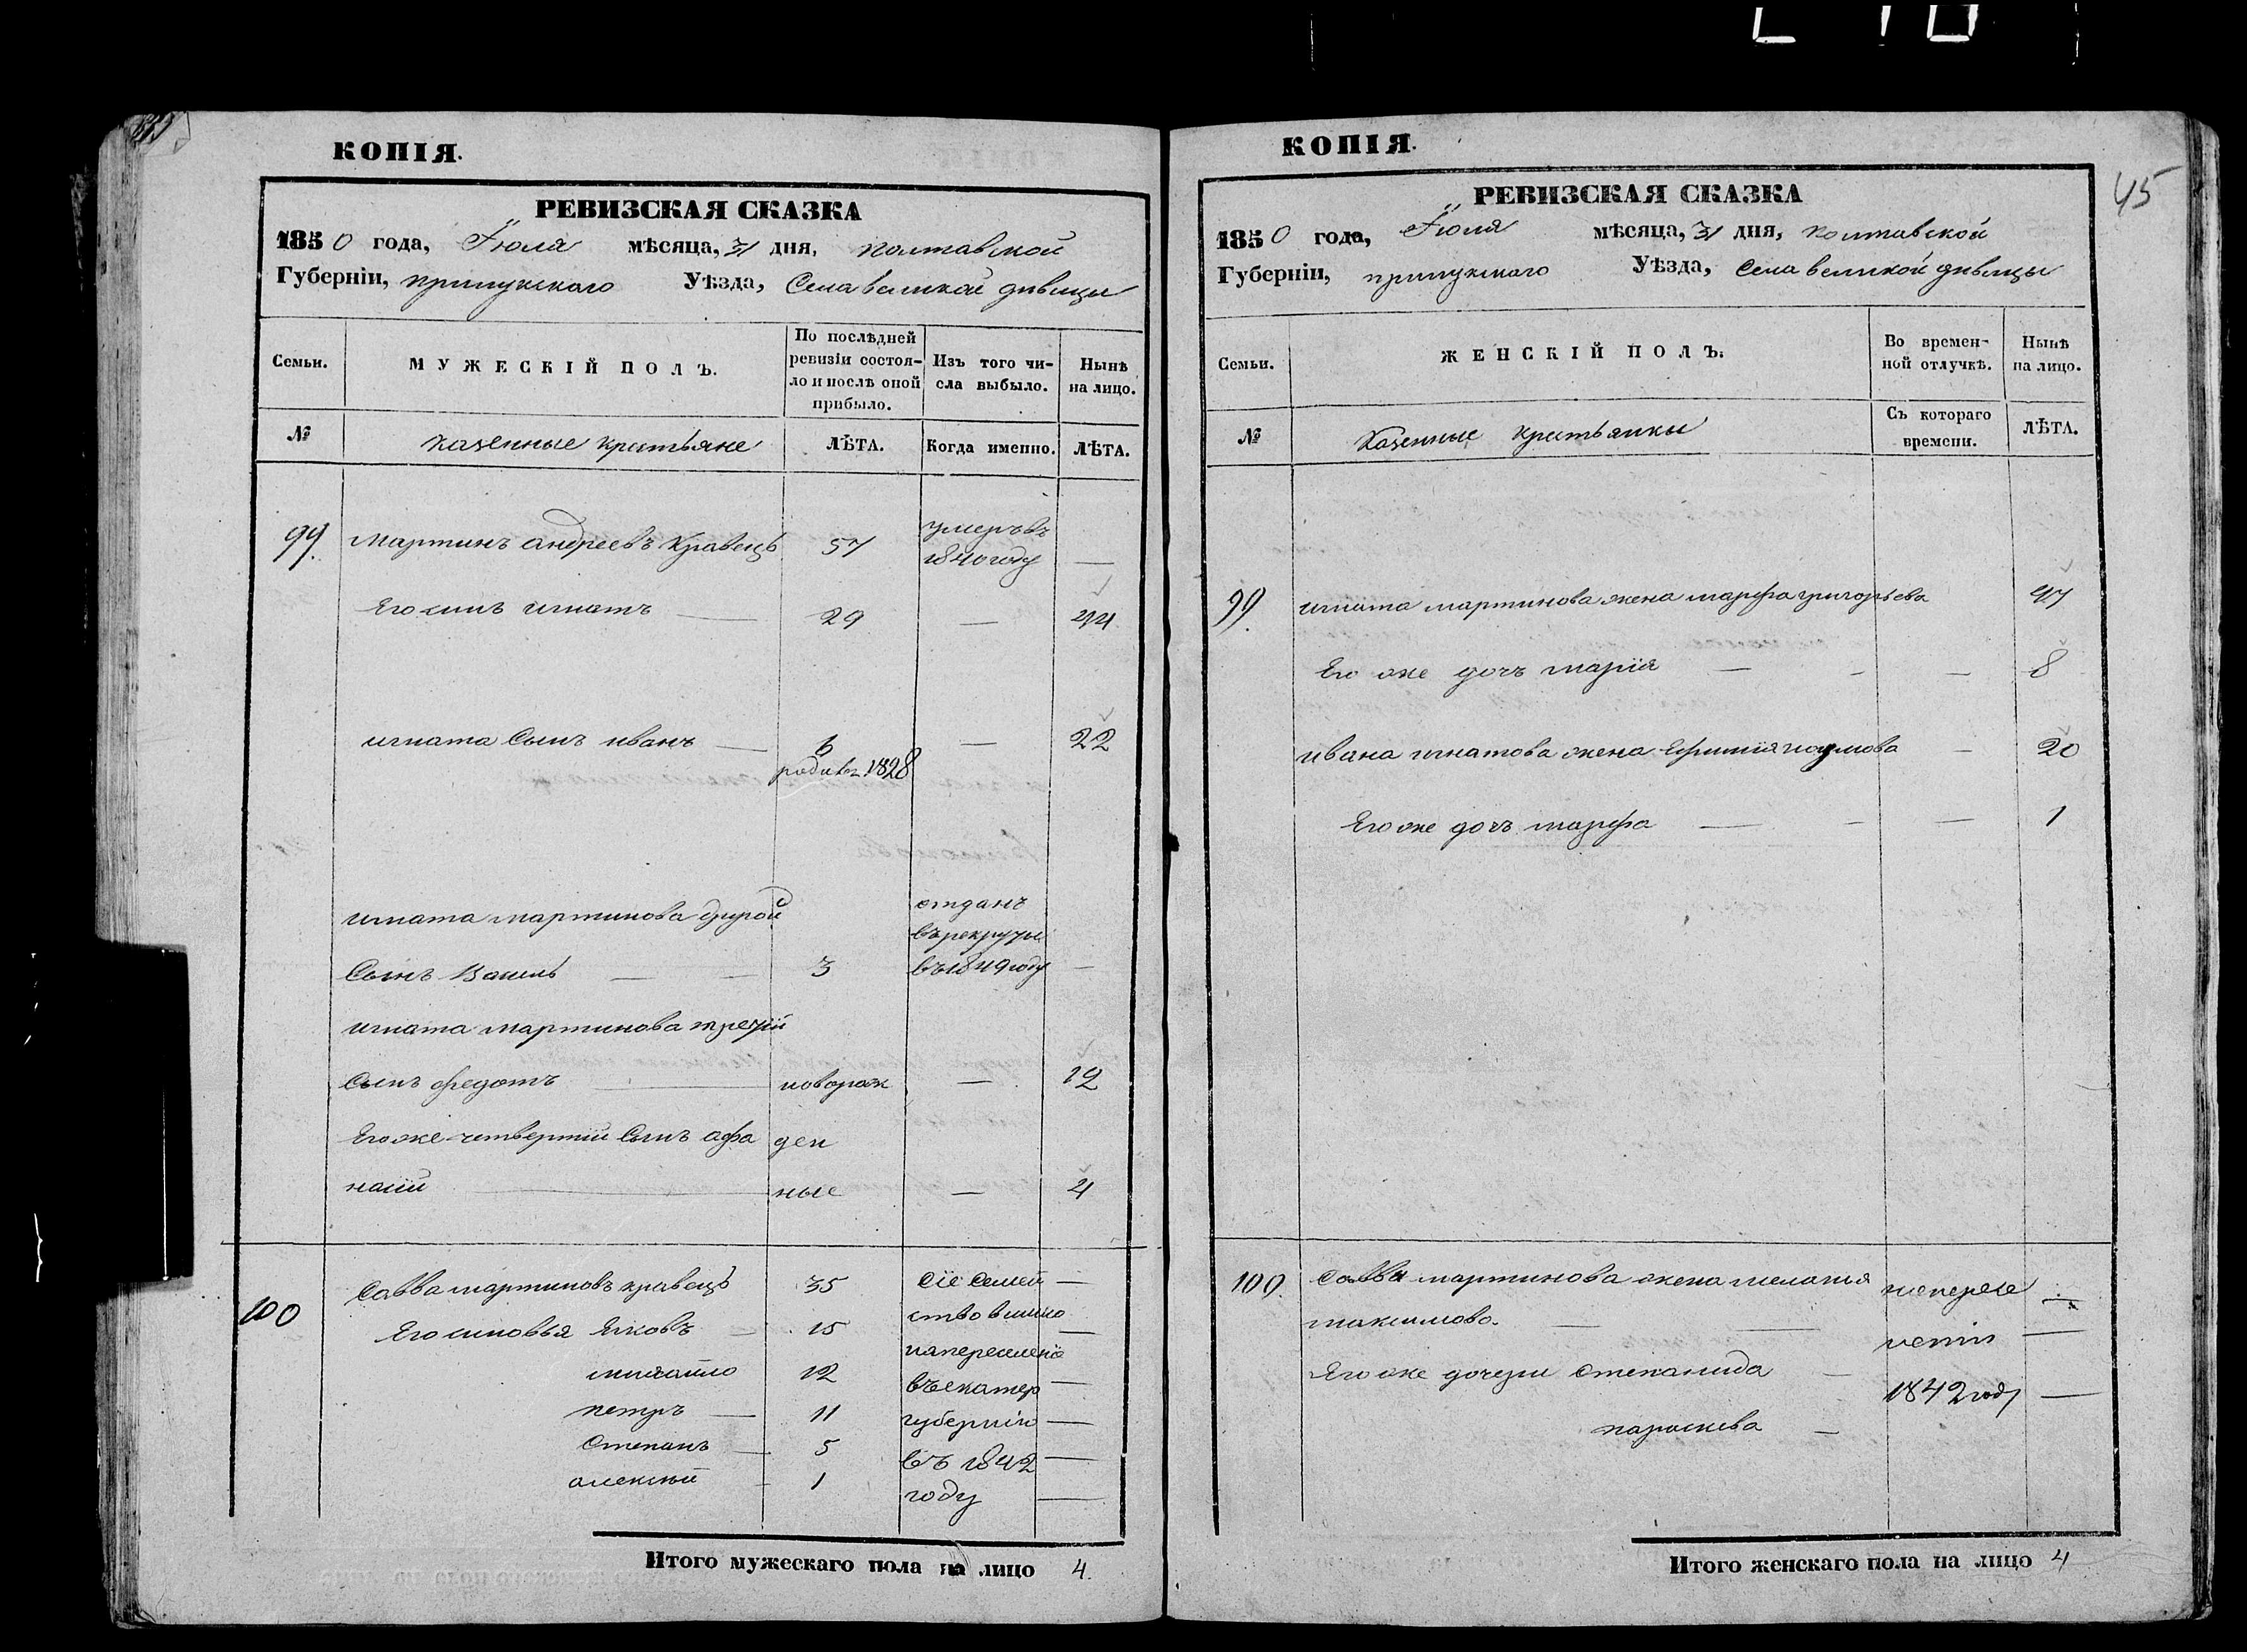 КОПІЯ.
РЕВИЗСКАЯ СКАЗКА
1850 года, Іюля мѣсяца, 31 дня, полтавской
Губерніи, прилукского Уѣзда, Села великой дивицы
Семьи.
МУЖЕСКІЙ ПОЛЪ.
По послѣдней
ревизіи состоя-
ло и послѣ оной
прибыло.
Изъ того чи-
сла выбыло.
Нынѣ
на лицо.
№
казенные крестьяне
ЛѢТА.
Когда именно.
ЛѢТА.
99. Мартинъ андреевъ Кравецъ 57 умеръ въ
1840 году —
Его синъ игнатъ — 29 — 44
игната Сынъ иванъ — 6 — 22
родився 1828
игната мартинова другой отданъ
в рекруты
Сынъ Василь — — 3 въ 1849 году —
игната мартинова третій
Сынъ федотъ — новорож — 12
Его же четвертій Сынъ афа ден
насій — ные — 4
100 Савва мартиновъ кравецъ 35 сіе семей —
ство вишло
Его синовья Яковъ — 15 —
на переселеніе
михайло 12 въ екатер —
петръ — 11 губернію —
Степанъ — 5 въ 1842 —
алексѣй — 1 году —
Итого мужескаго пола на лицо 4.
КОПІЯ.
45
РЕВИЗСКАЯ СКАЗКА
1850 года, Іюля мѣсяца, 31 дня, полтавской
Губерніи, прилукского Уѣзда, Села великой дивицы
Семьи.
ЖЕНСКІЙ ПОЛЪ.
Во времен-
ной отлучкѣ.
Нынѣ
на лицо.
№
Казенные крестьянки
Съ котораго
времени.
ЛѢТА.
99. игната мартинова жена марфа григорьева 47
Его же дочъ марія — — — 8
ивана игнатова жена наумова — 20
Его же дочъ марфа — — — 1
100. Саввы мартинова жена мелания на пересе —
максимова. — — ленiи —
Его же дочери степанида — 1842 году —
параскева —
Итого женскаго пола на лицо 4